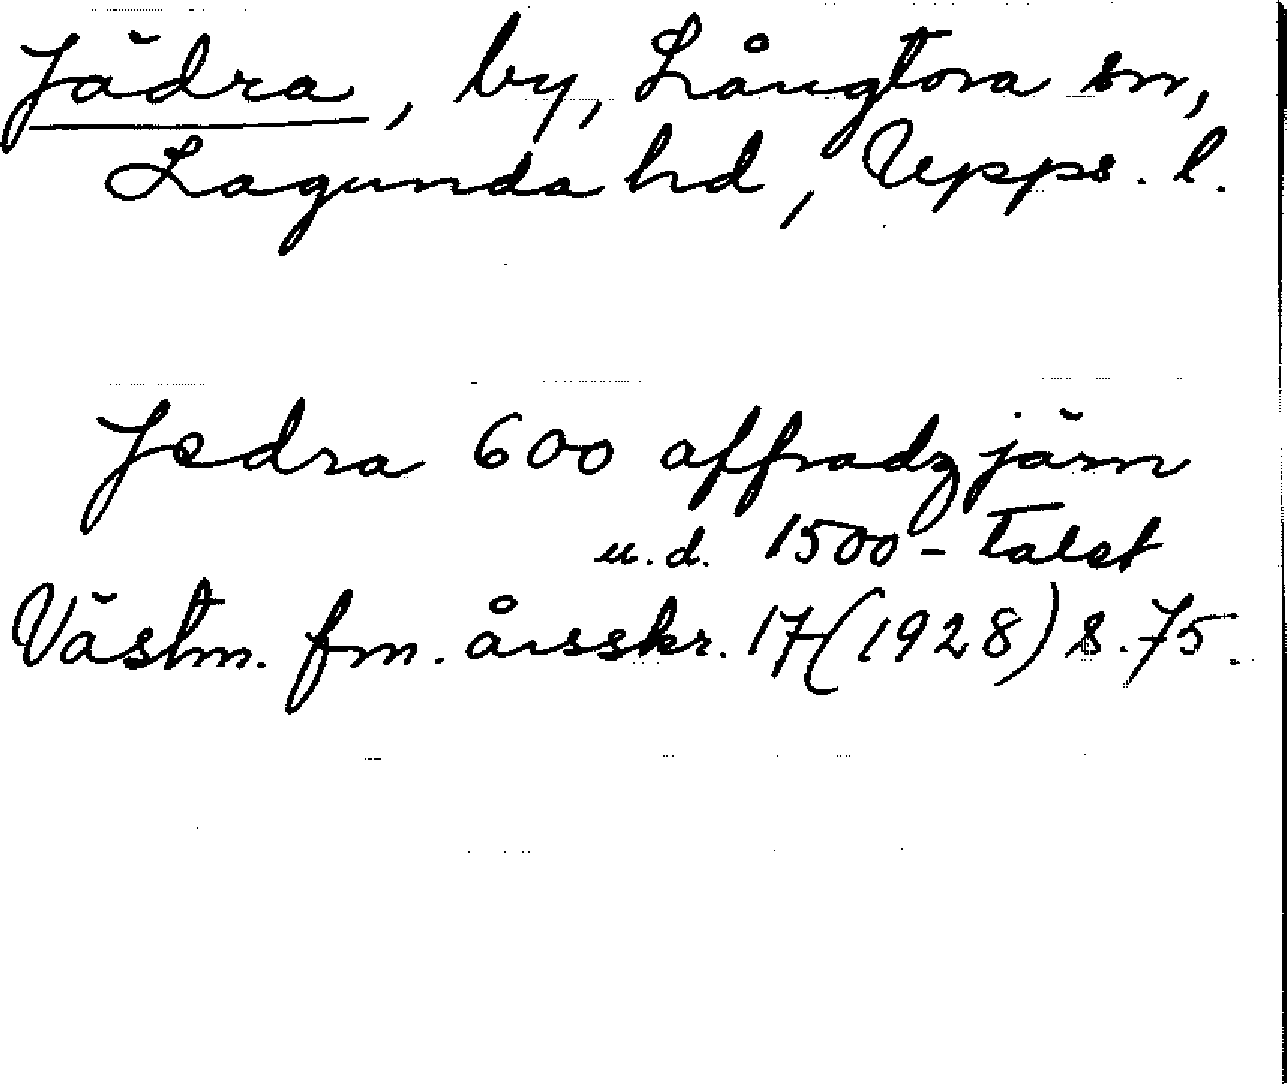 Jädra, by, Långtora sn,
Lagunda hd, Upps. l.
Jedra 600 affradzjärn
u.d. 1500-talet
Västm. fm. årsskr. 17 (1928) s. 75.